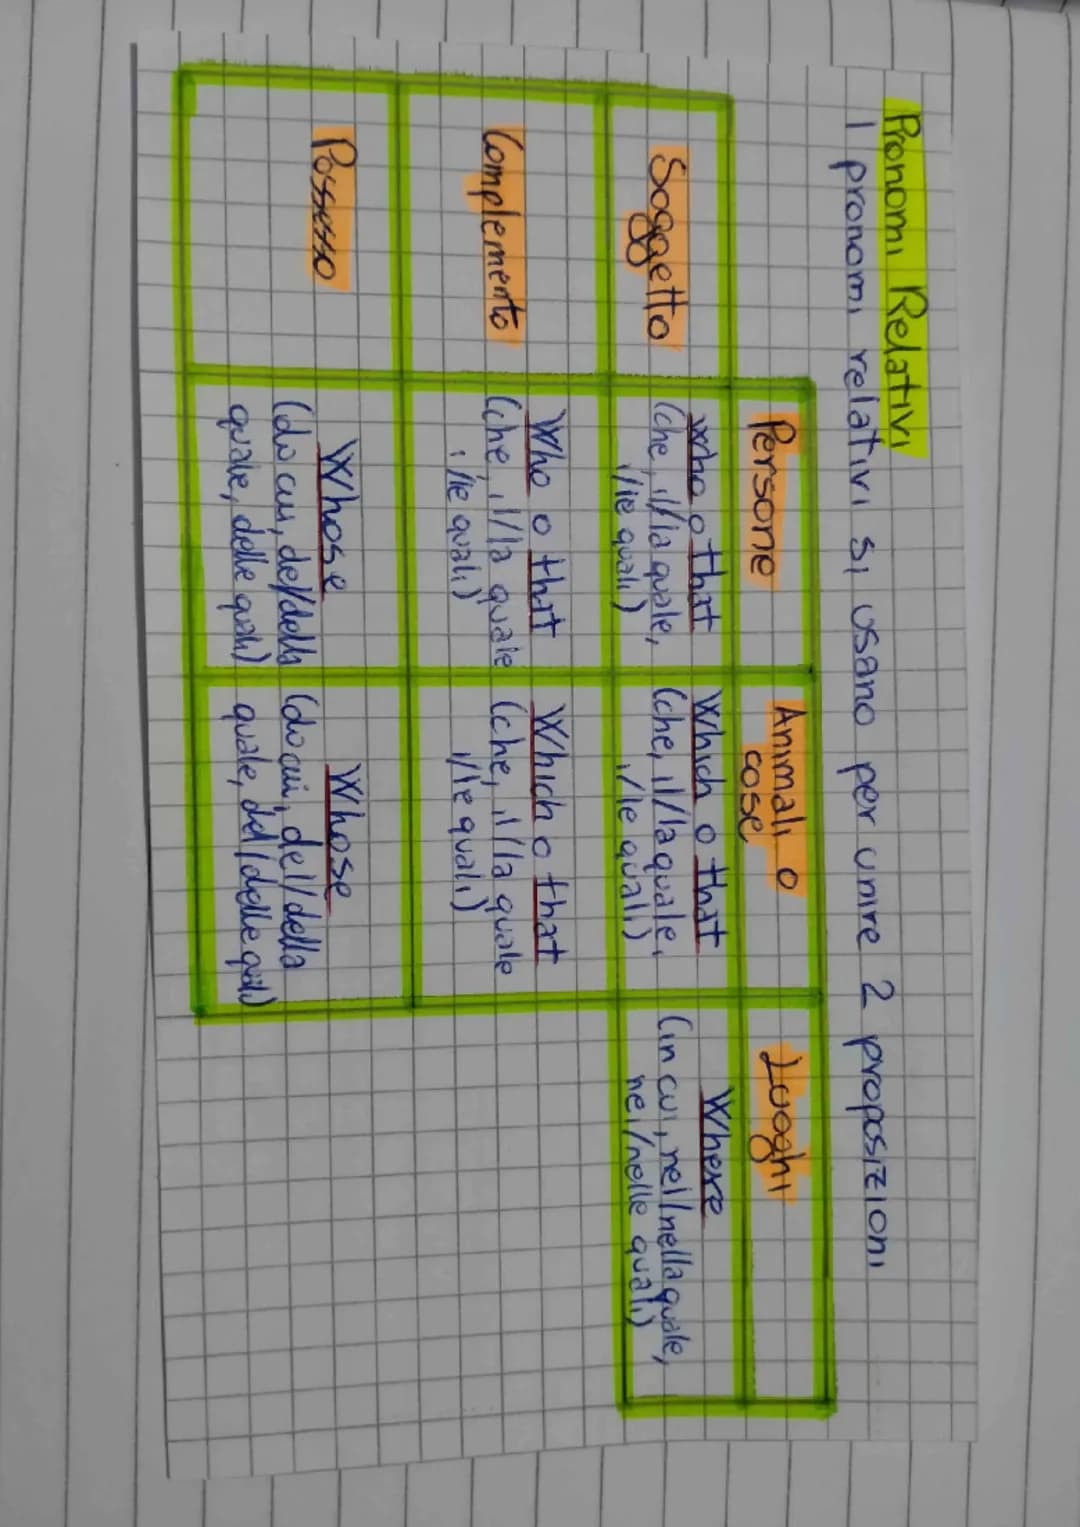 Pronomi Relativi
I pronomi relativi si usano per unire 2 proposizioni
Persone
Animali o
cose
Luoghi
Soggetto
Who o that
(che, il/la quale,
i/le quali)
Which o that
(che, il/la quale,
i/le quali)
Where
(in cui, nel/nella quale,
nei/nelle quali)
Complemento
Who o that
(che, il/la quale
i/le quali)
Which o that
(che, il/la quale
i/le quali)
Possesso
Whose
(di cui, del/della
quale, delle quali)
Whose
(di cui, del/della
quale, del/delle quali)